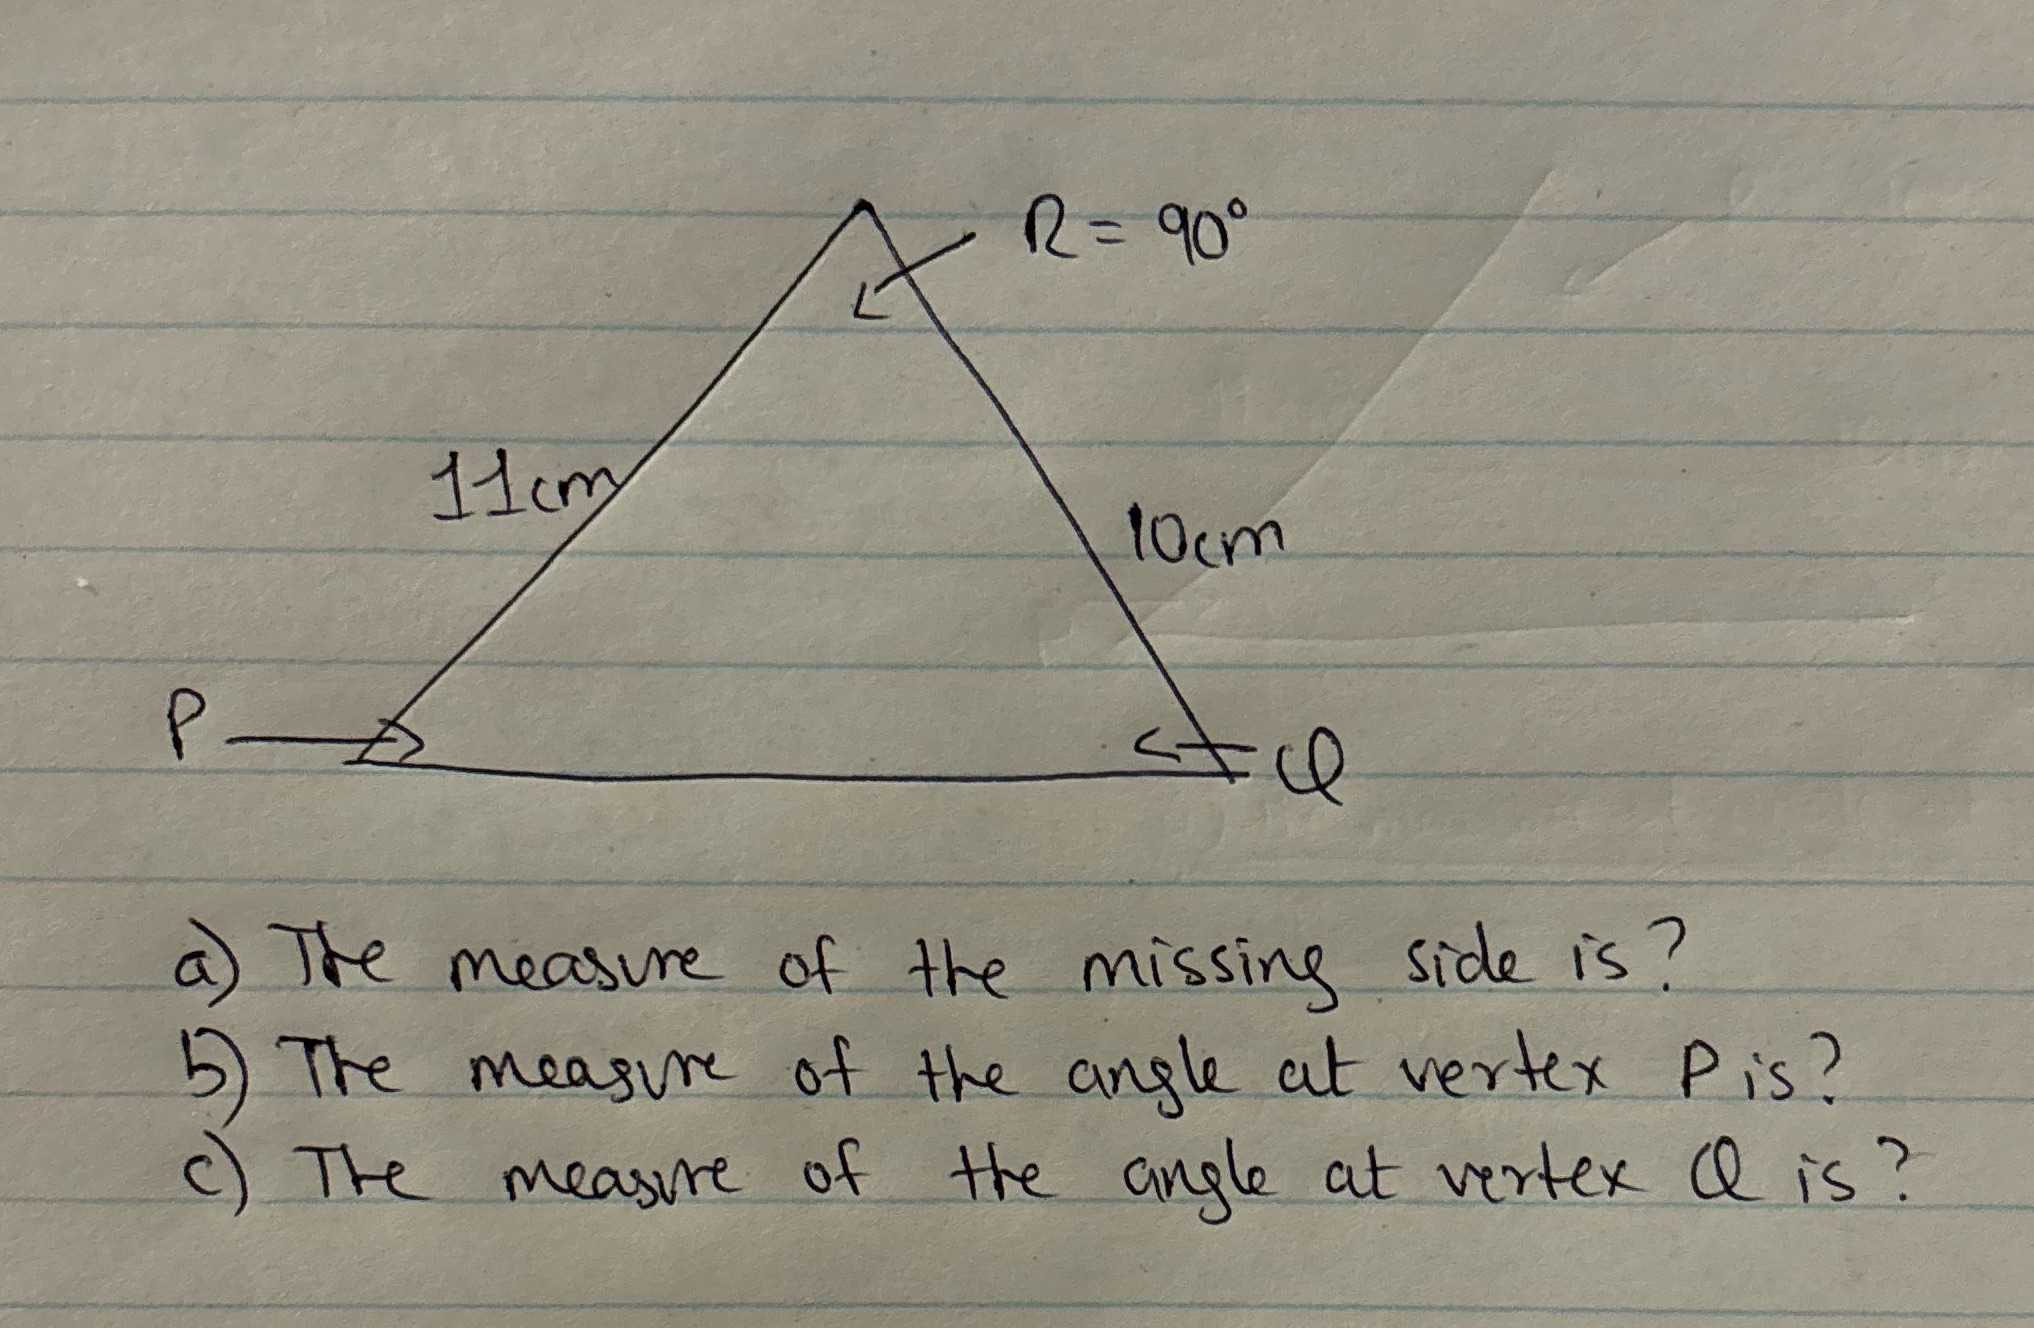 R = 90°
11cm
10cm
P
Q
a) The measure of the missing side is?
b) The measure of the angle at vertex P is?
c) The measure of the angle at vertex Q is?